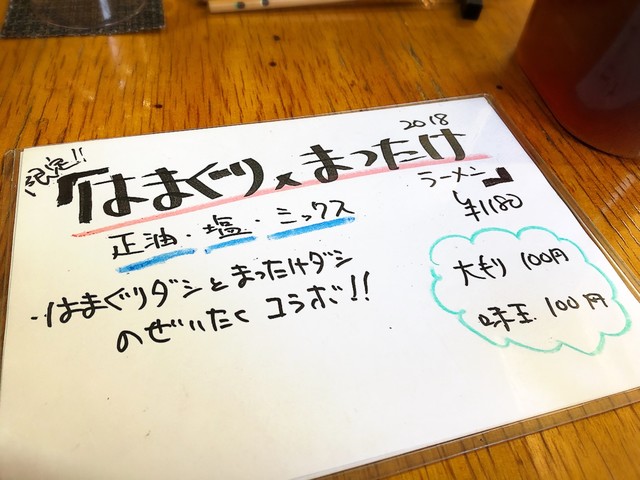 2018
限定!!
「はまぐり×まったけ
ラーメン」
¥1180
正油・塩・ミックス
・はまぐりダシとまったけダシ
のぜいたくコラボ!!
大判 100円
味玉 100円